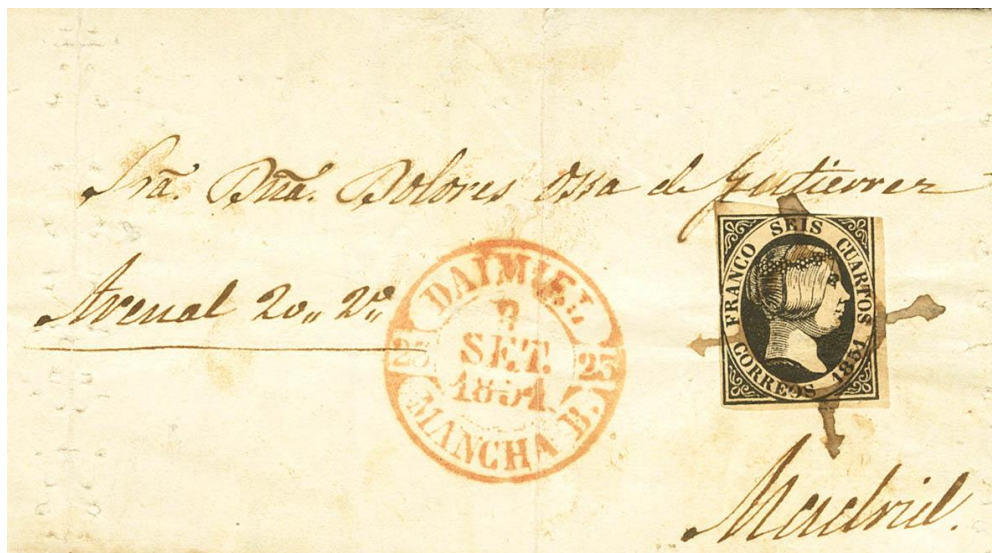 Sra. Dña. Dolores Ossa de Gutierrez
Arenal 20,, 2º,,
DAIMIEL
SET.
1851
25 25
MANCHA B.
FRANCO SEIS CUARTOS
CORREOS 1851
Madrid.